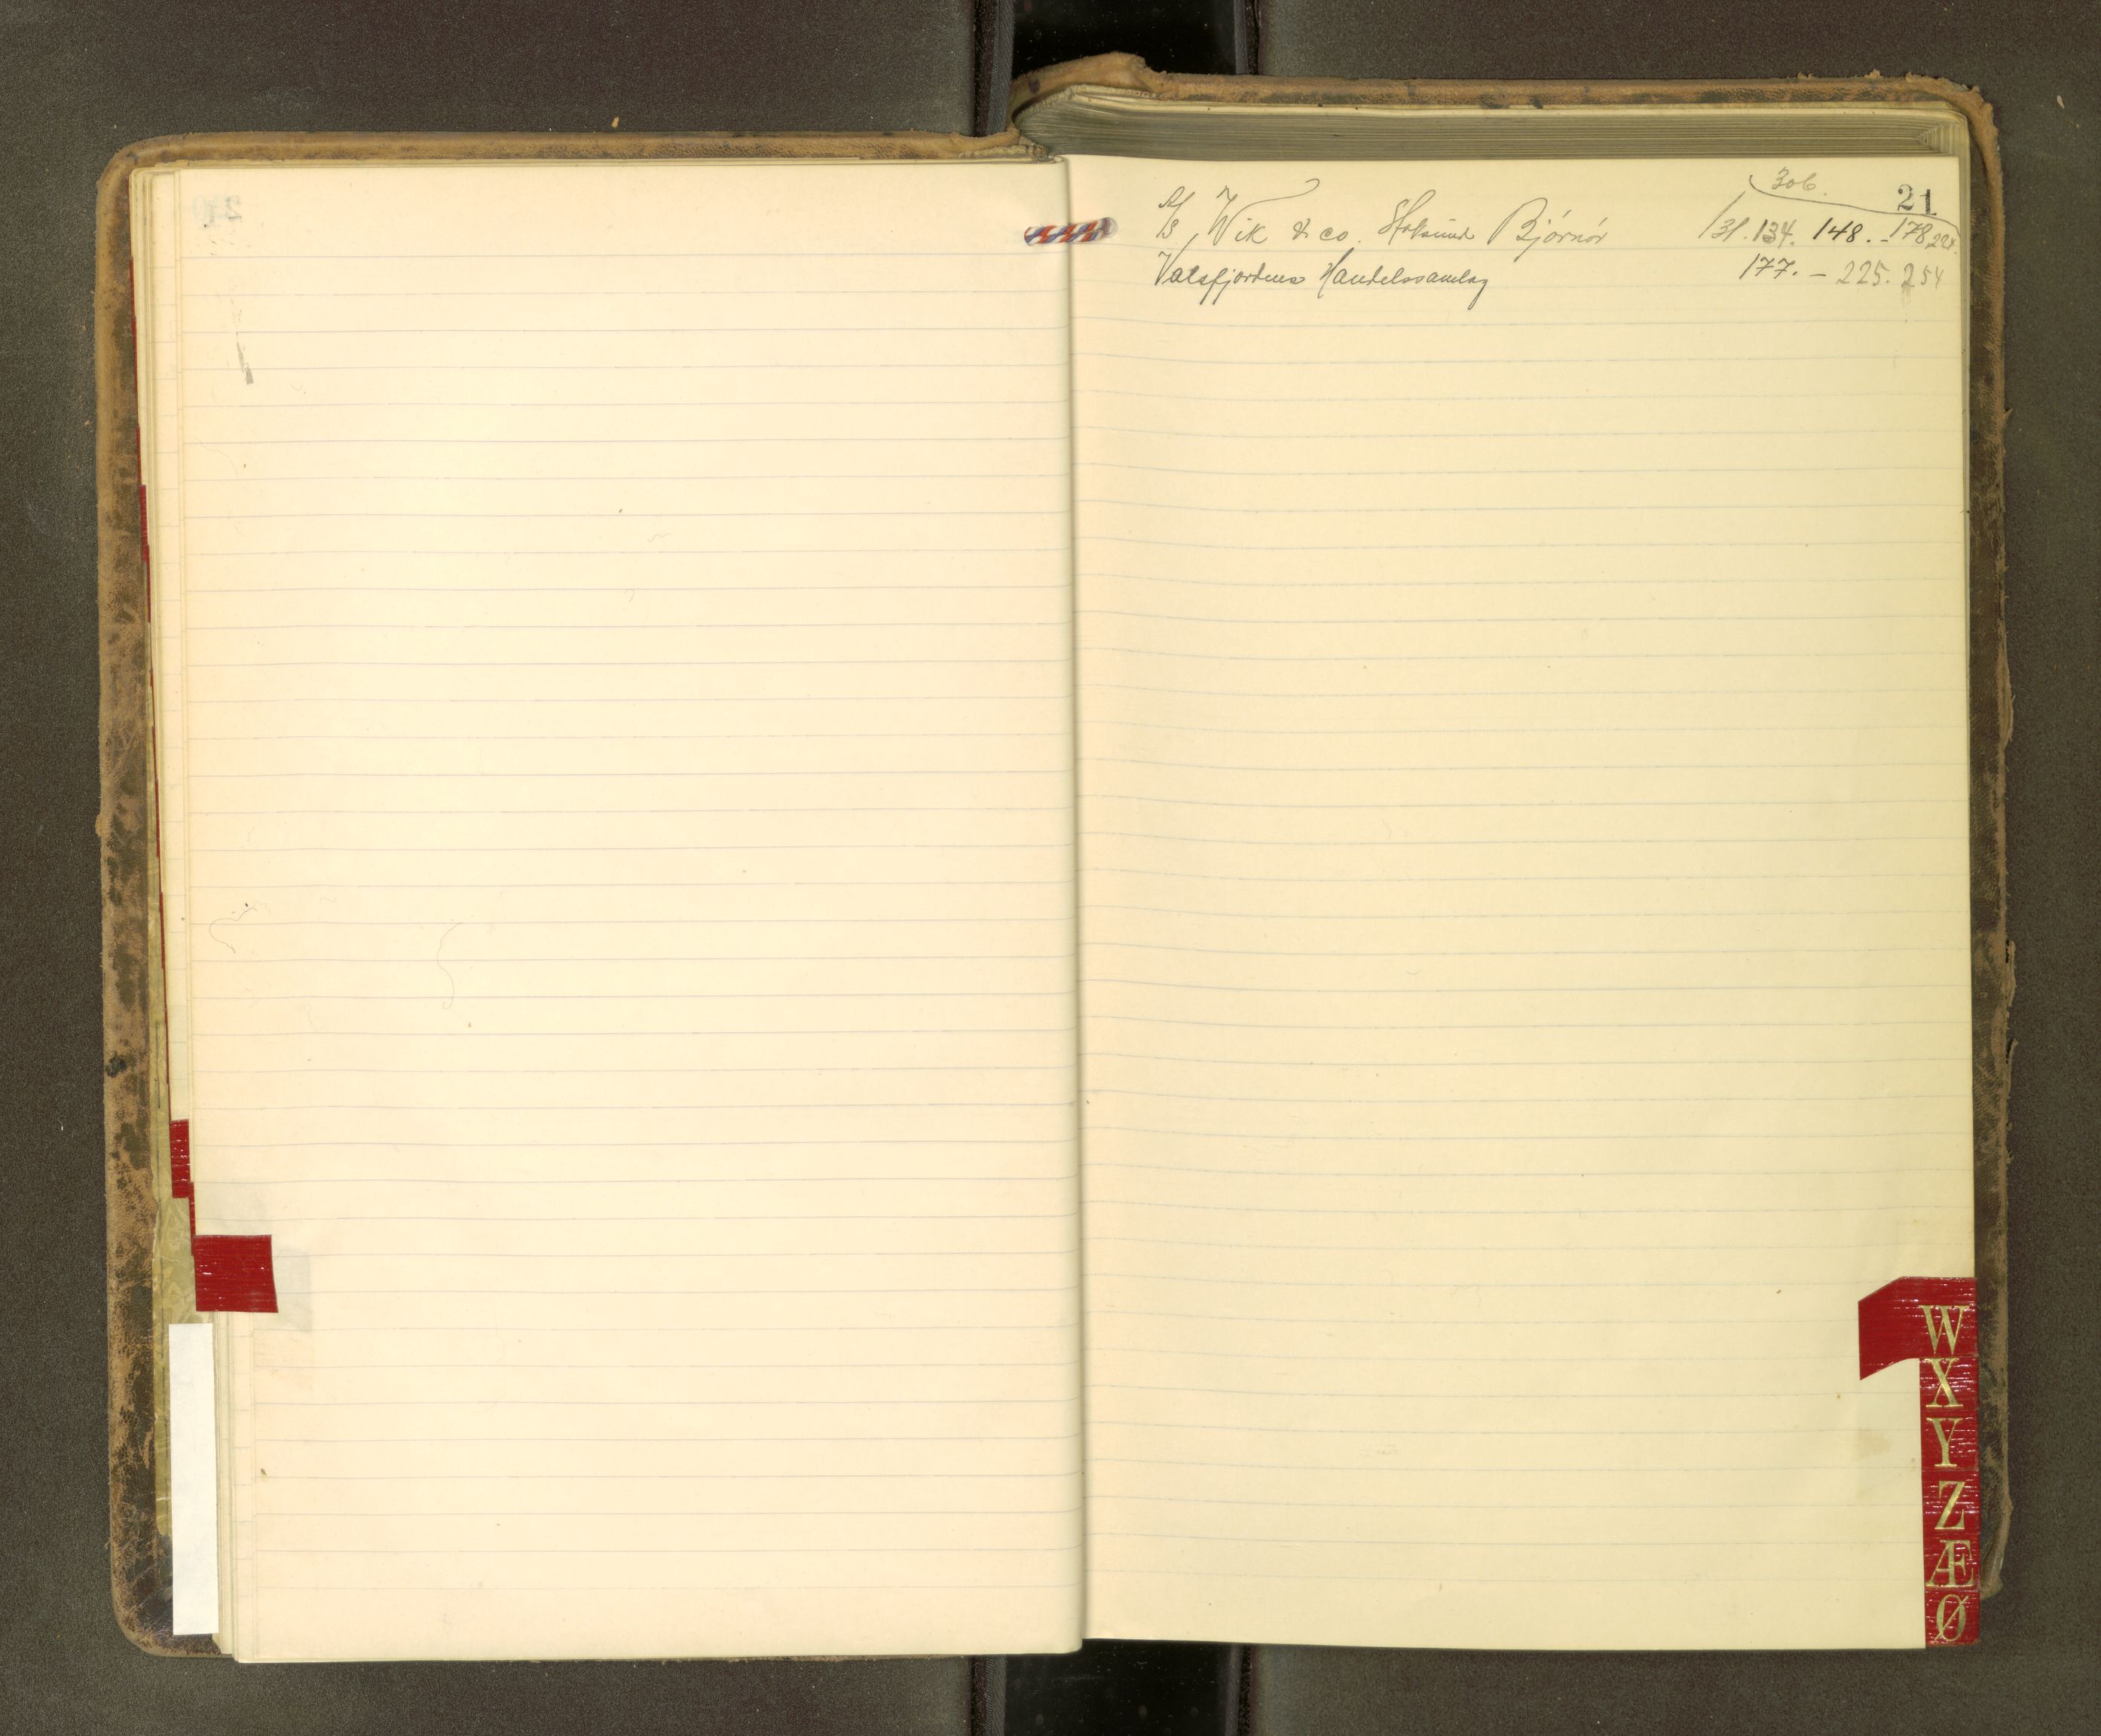 306.
21
A/S Wik & co. Stoksund Bjørnør 131. 134. 148. - 178
Valsfjordens Handelssamlag 177. - 225. 254
W
X
Y
Z
Æ
Ø